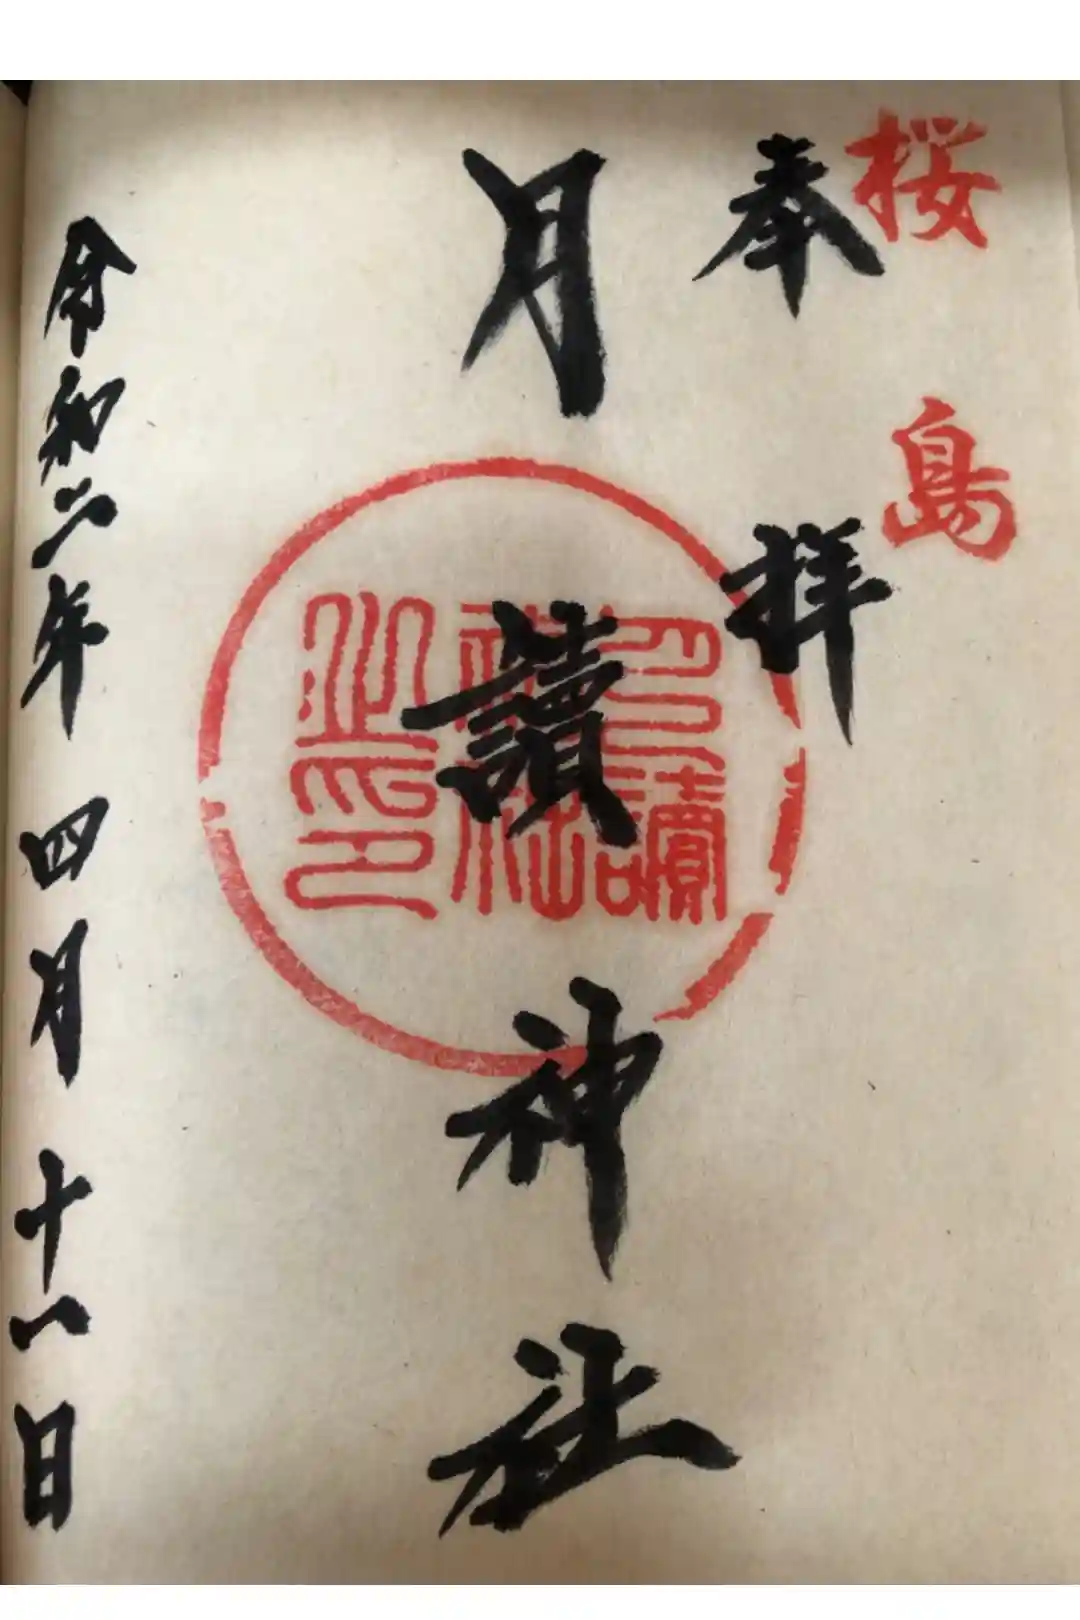 桜島
奉拝
月讀神社
月讀
神社
之印
令和二年四月十八日